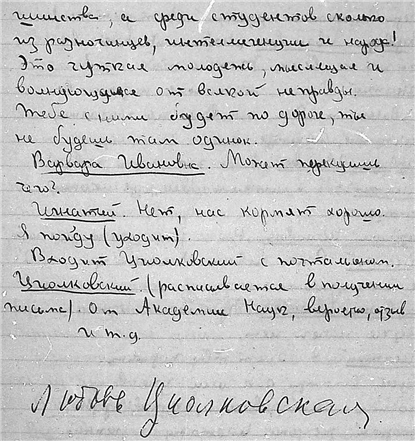 шинства, а среди студентов сколько
из разночинцев, интеллигенции и науч!
Это чуткая молодежь, мыслящая и
волнующаяся от всякой неправды.
Тебе с ними будет по дороге, ты
не будешь там одинок.
Варвара Ивановна. Может перекусишь
чего?
Игнатий. Нет, нас кормят хорошо.
Я пойду (уходит).
Входит Циолковский с почтальоном.
Циолковский (расписывается в получении
письма). От Академии Наук, вероятно, отзыв
и т.д.
Любовь Циолковская